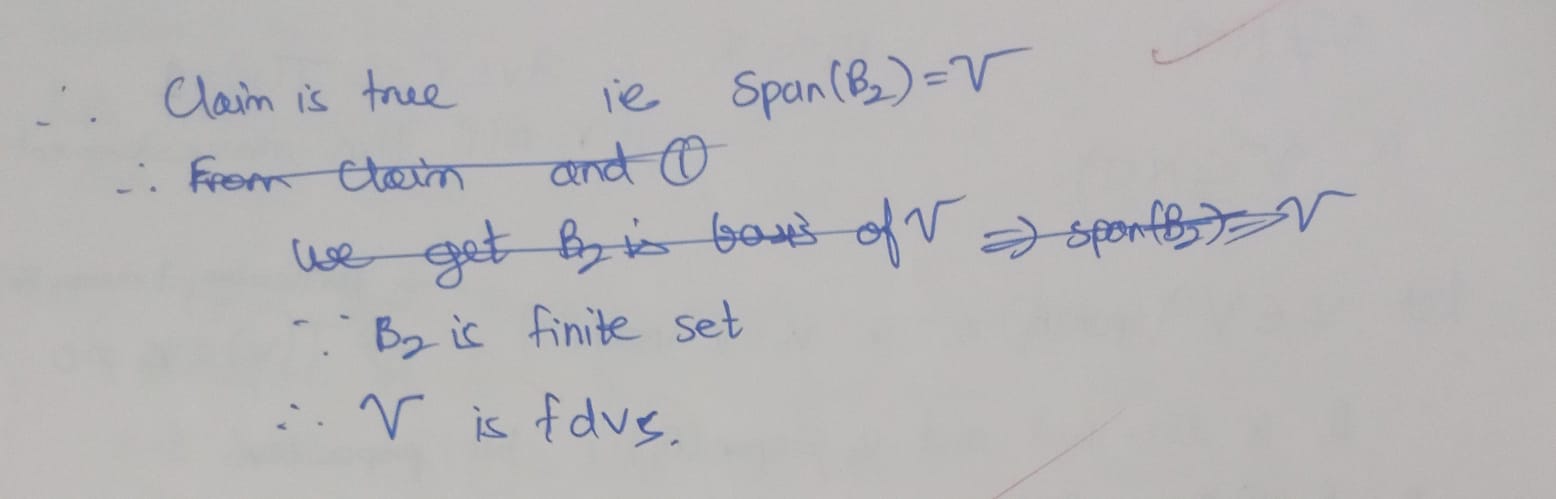 ∴ Claim is true ie Span(B₂)=V
∴ From Claim and ①
we get B₂ is basis of V ⇒ span(B₂)=V
∵ B₂ is finite set
∴ V is fdvs.